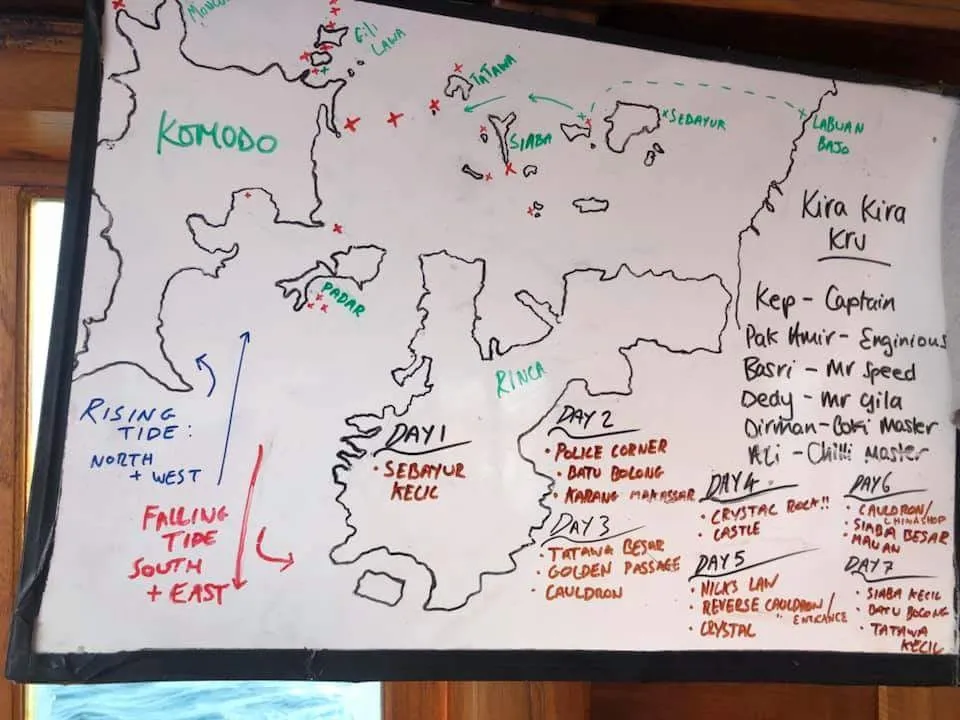 GILI
LAWA
TATAWA
KOMODO
SIABA
SEDAYUR
LABUAN
BAJO
PADAR
RINCA
RISING
TIDE:
NORTH
+ WEST
FALLING
TIDE
SOUTH
+ EAST
Kira Kira
Kru
Kep - Captain
Pak Amir - Enginious
Basri - Mr Speed
Dedy - Mr Gila
Dirman - Master
Ali - Chilli Master
DAY 1
• SEBAYUR
KECIL
DAY 2
• POLICE CORNER
• BATU BOLONG
• KARANG MAKASSAR
DAY 3
• TATAWA BESAR
• GOLDEN PASSAGE
• CAULDRON
DAY 4
• CRYSTAL ROCK!!
• CASTLE
DAY 5
• NICK'S LAW
• REVERSE CAULDRON/
" ENTRANCE
• CRYSTAL
DAY 6
• CAULDRON/
CHINASHOP
• SIABA BESAR
• MAWAN
DAY 7
• SIABA KECIL
• BATU BOLONG
• TATAWA
KECIL